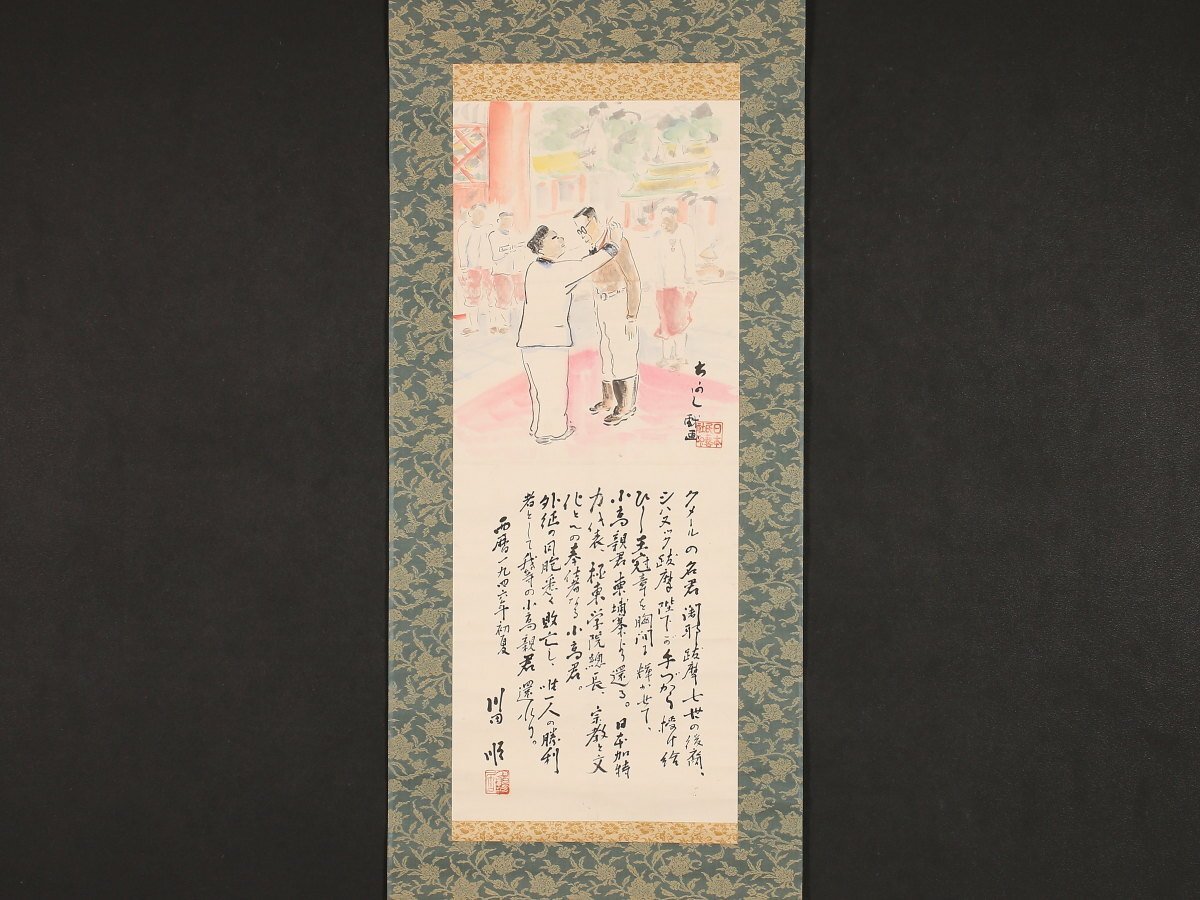 ちかし
戯画
クメールの名君闍耶跋摩七世の後裔、
シハヌック跋摩陛下が手づから授け給
ひし王冠章を胸間に輝かせて、
小高親君柬埔寨より還る。日本加特
力代表、極東学院總長、宗教と文
化とへの奉仕者なる小高君。
外征の同胞悉く敗亡し、唯一人の勝利
者として我等の小高親君還れり。
西暦一九四六年初夏
川田順